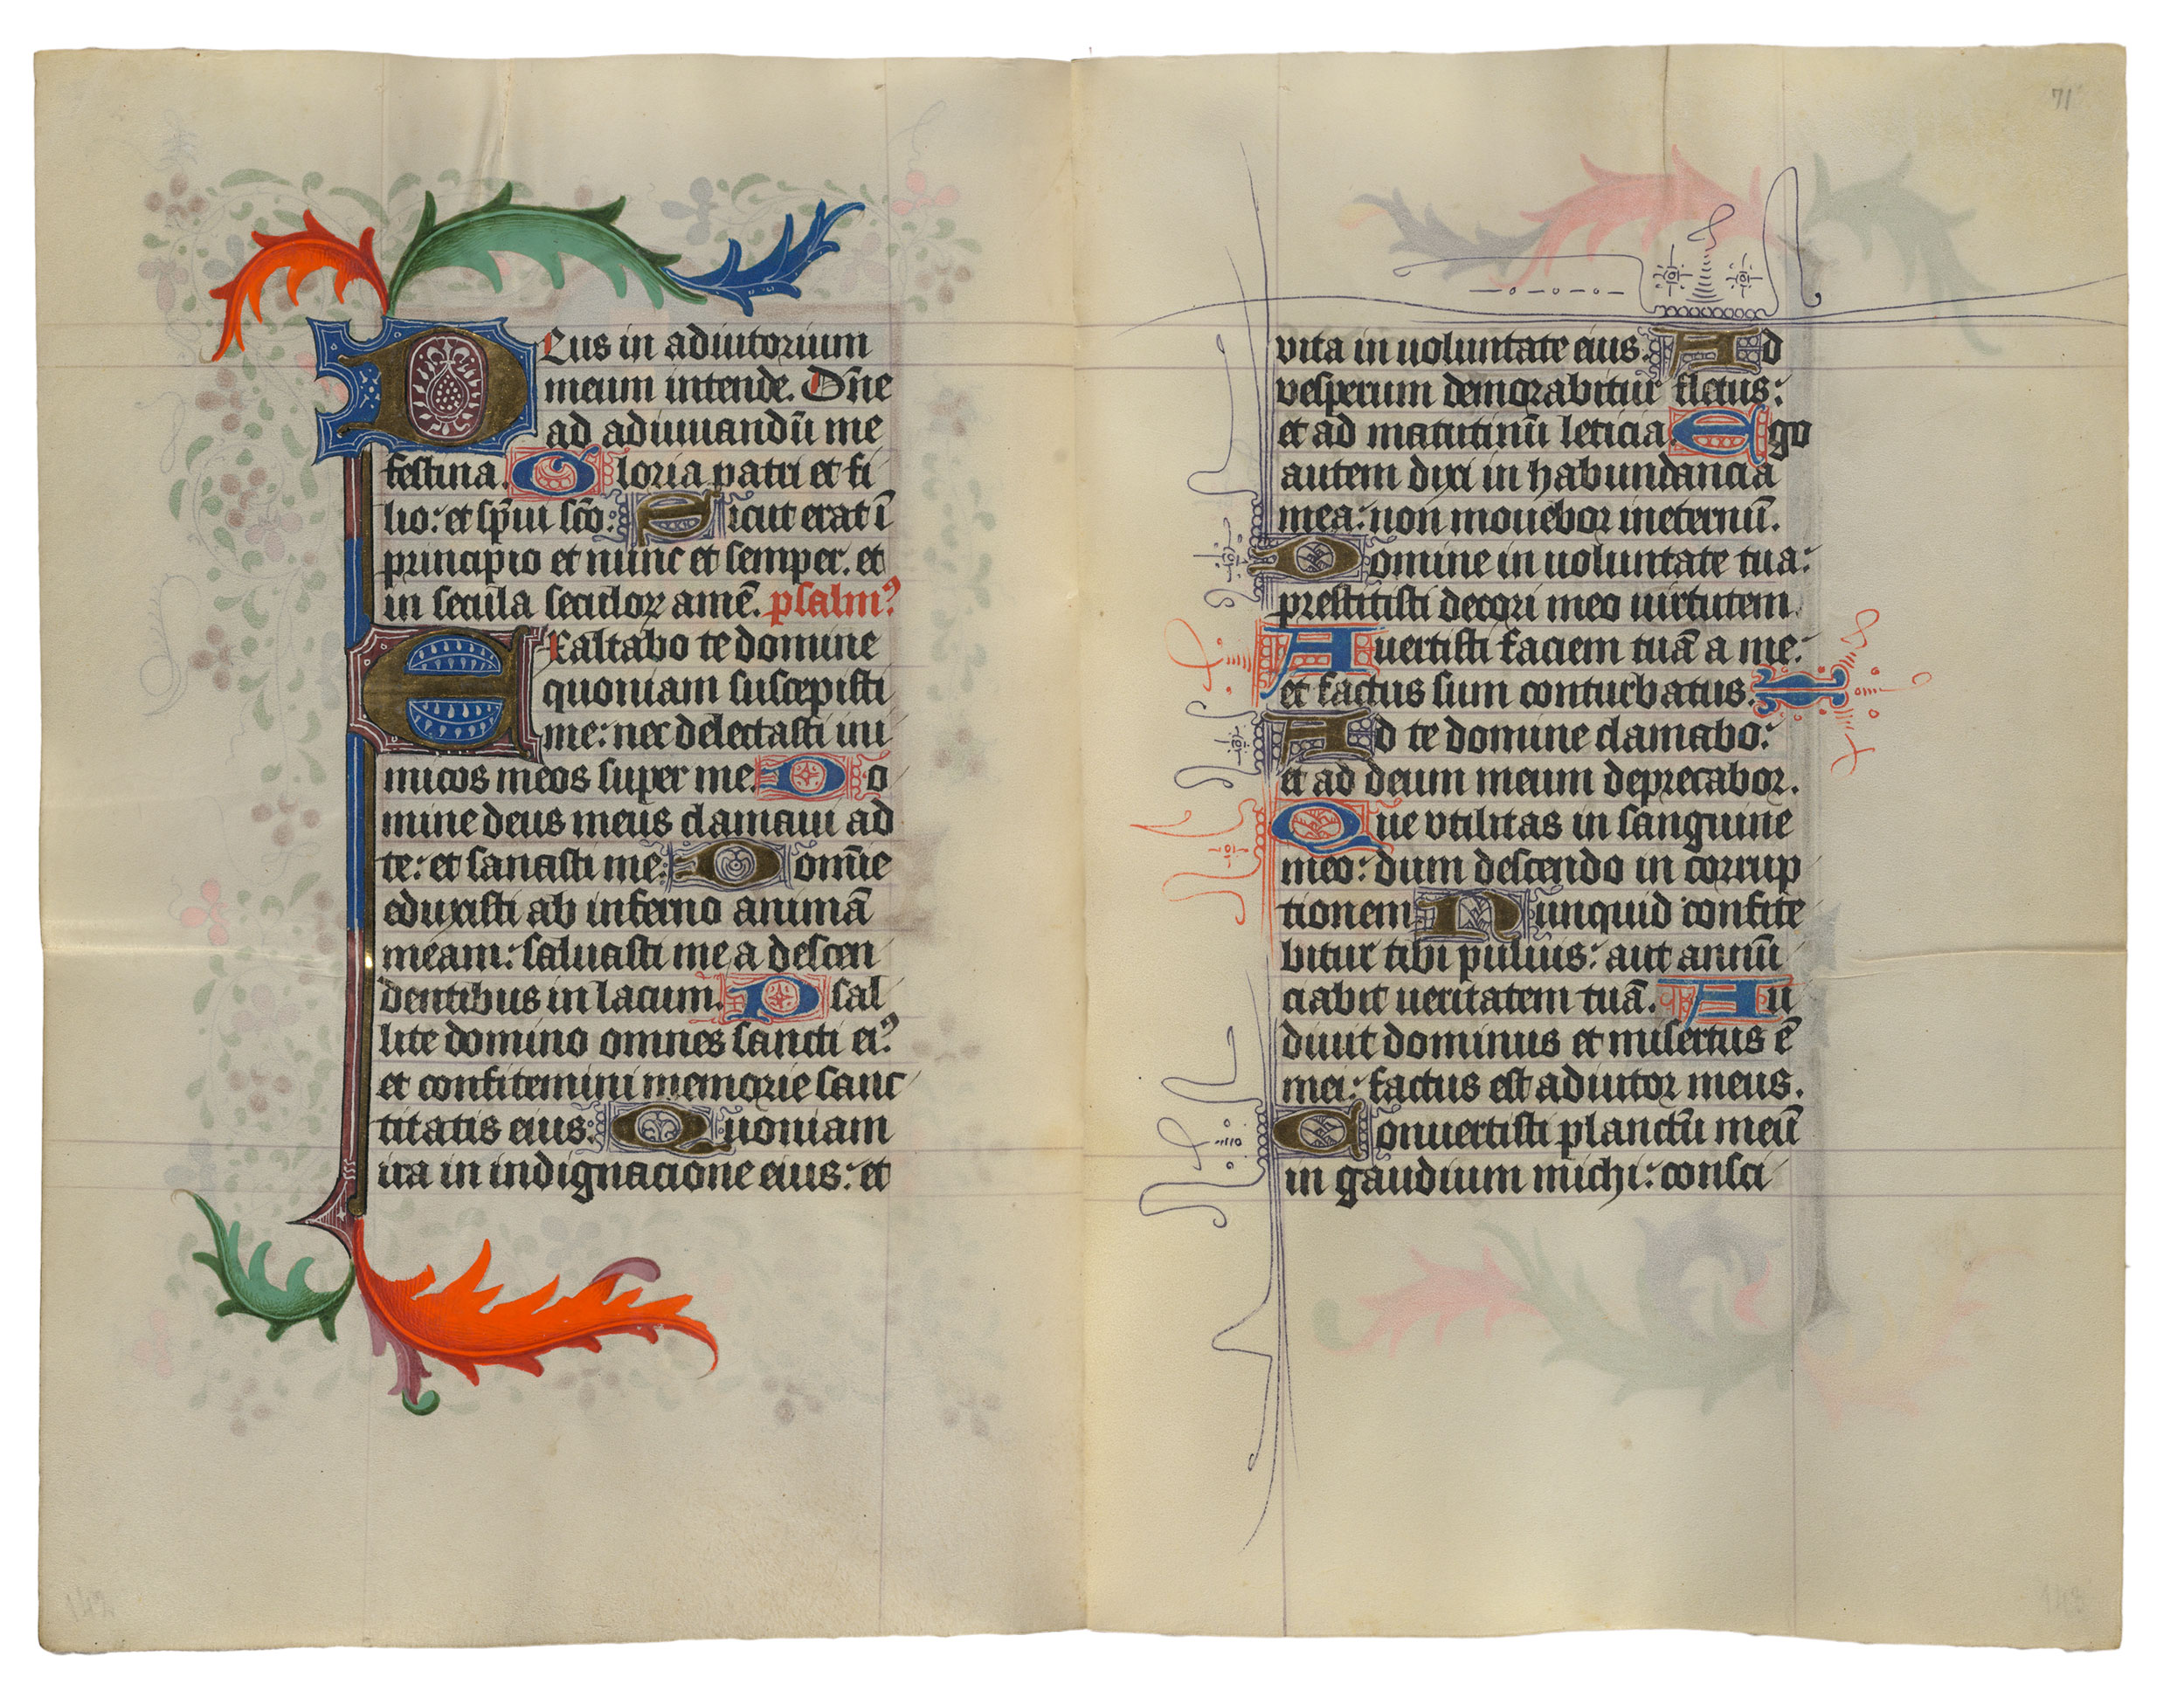 Deus in adiutorium
meum intende. Dn̄e
ad adiuuandū me
festina. Gloria patri et fi
lio: et sp̄ui sc̄o: Sicut erat ī
principio et nunc et semper. et
in secula seculoꝝ amē. psalmꝰ
Exaltabo te domine
quoniam suscepisti
me: nec delectasti ini
micos meos super me. Do
mine deus meus clamaui ad
te: et sanasti me: Domīe
eduxisti ab inferno animā
meam: saluasti me a descen
dentibus in lacum. Psal
lite domino omnes sancti eiꝰ
et confitemini memorie sanc
titatis eius: Quoniam
ira in indignacione eius: et
71
vita in uoluntate eius. Ad
vesperum demorabitur fletus:
et ad matutinū leticia. Ego
autem dixi in habundancia
mea: non mouebor ineternū.
Domine in uoluntate tua:
prestitisti decori meo uirtutem
Auertisti faciem tuā a me:
et factus sum conturbatus.
Ad te domine clamabo:
et ad deum meum deprecabor.
Que vtilitas in sanguine
meo: dum descendo in corrup
tionem Nunquid confite
bitur tibi puluis: aut annū
ciabit ueritatem tuā. Au
diuit dominus et misertus ē
mei: factus est adiutor meus.
Conuertisti planctū meū
in gaudium michi: consci
142
143